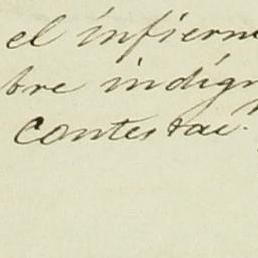 el infiern
bre indign
contestac.